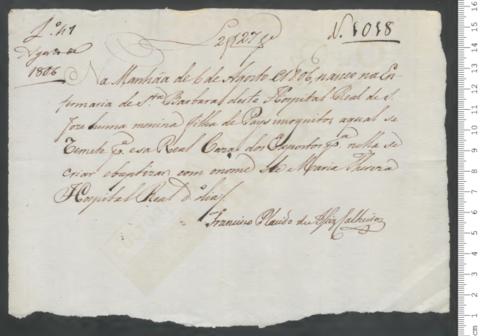 L.º 41
Agosto de
1806
L 2 f 127
N. 1018
Na Manhãa de 6 de Agosto d 1806, naceo na En-
fermaria de Sta Barbara deste Hospital Real de S.
Joze huma menina filha de Pays incognitos aqual se
Remete pª esa Real Caza dos Expostos pª nella se
criar e baptizar com o nome de Maria Thereza
Hospital Real d
Francisco Placido de